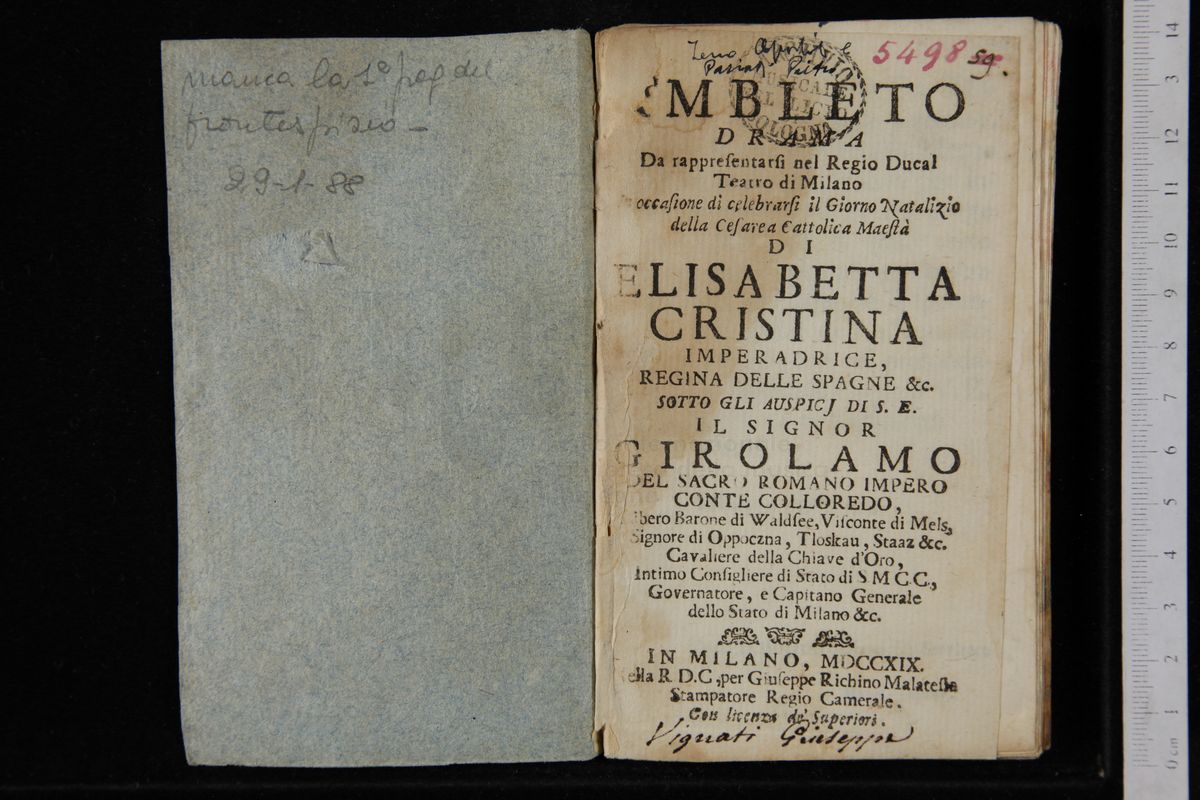 manca la 1ª pag del
frontespizio -
29-1-88
Zeno Apostolo e
Pariati Pietro
5498
59.
MBLETO
DRAMA
Da rappreſentarſi nel Regio Ducal
Teatro di Milano
occaſione di celebrarſi il Giorno Natalizio
della Ceſarea Cattolica Maeſtà
DI
ELISABETTA
CRISTINA
IMPERADRICE,
REGINA DELLE SPAGNE &c.
SOTTO GLI AUSPICJ DI S. E.
IL SIGNOR
GIROLAMO
DEL SACRO ROMANO IMPERO
CONTE COLLOREDO,
ibero Barone di Waldſee, Viſconte di Mels,
Signore di Oppoczna, Tloskau, Staaz &c.
Cavaliere della Chiave d'Oro,
Intimo Conſigliere di Stato di S M C.C.,
Governatore, e Capitano Generale
dello Stato di Milano &c.
IN MILANO, MDCCXIX.
ella R. D.C, per Giuſeppe Richino Malateſta
Stampatore Regio Camerale.
Con licenza de' Superiori.
Vignati Giuseppe
14
13
12
11
10
9
8
7
6
5
4
3
2
1
0 cm